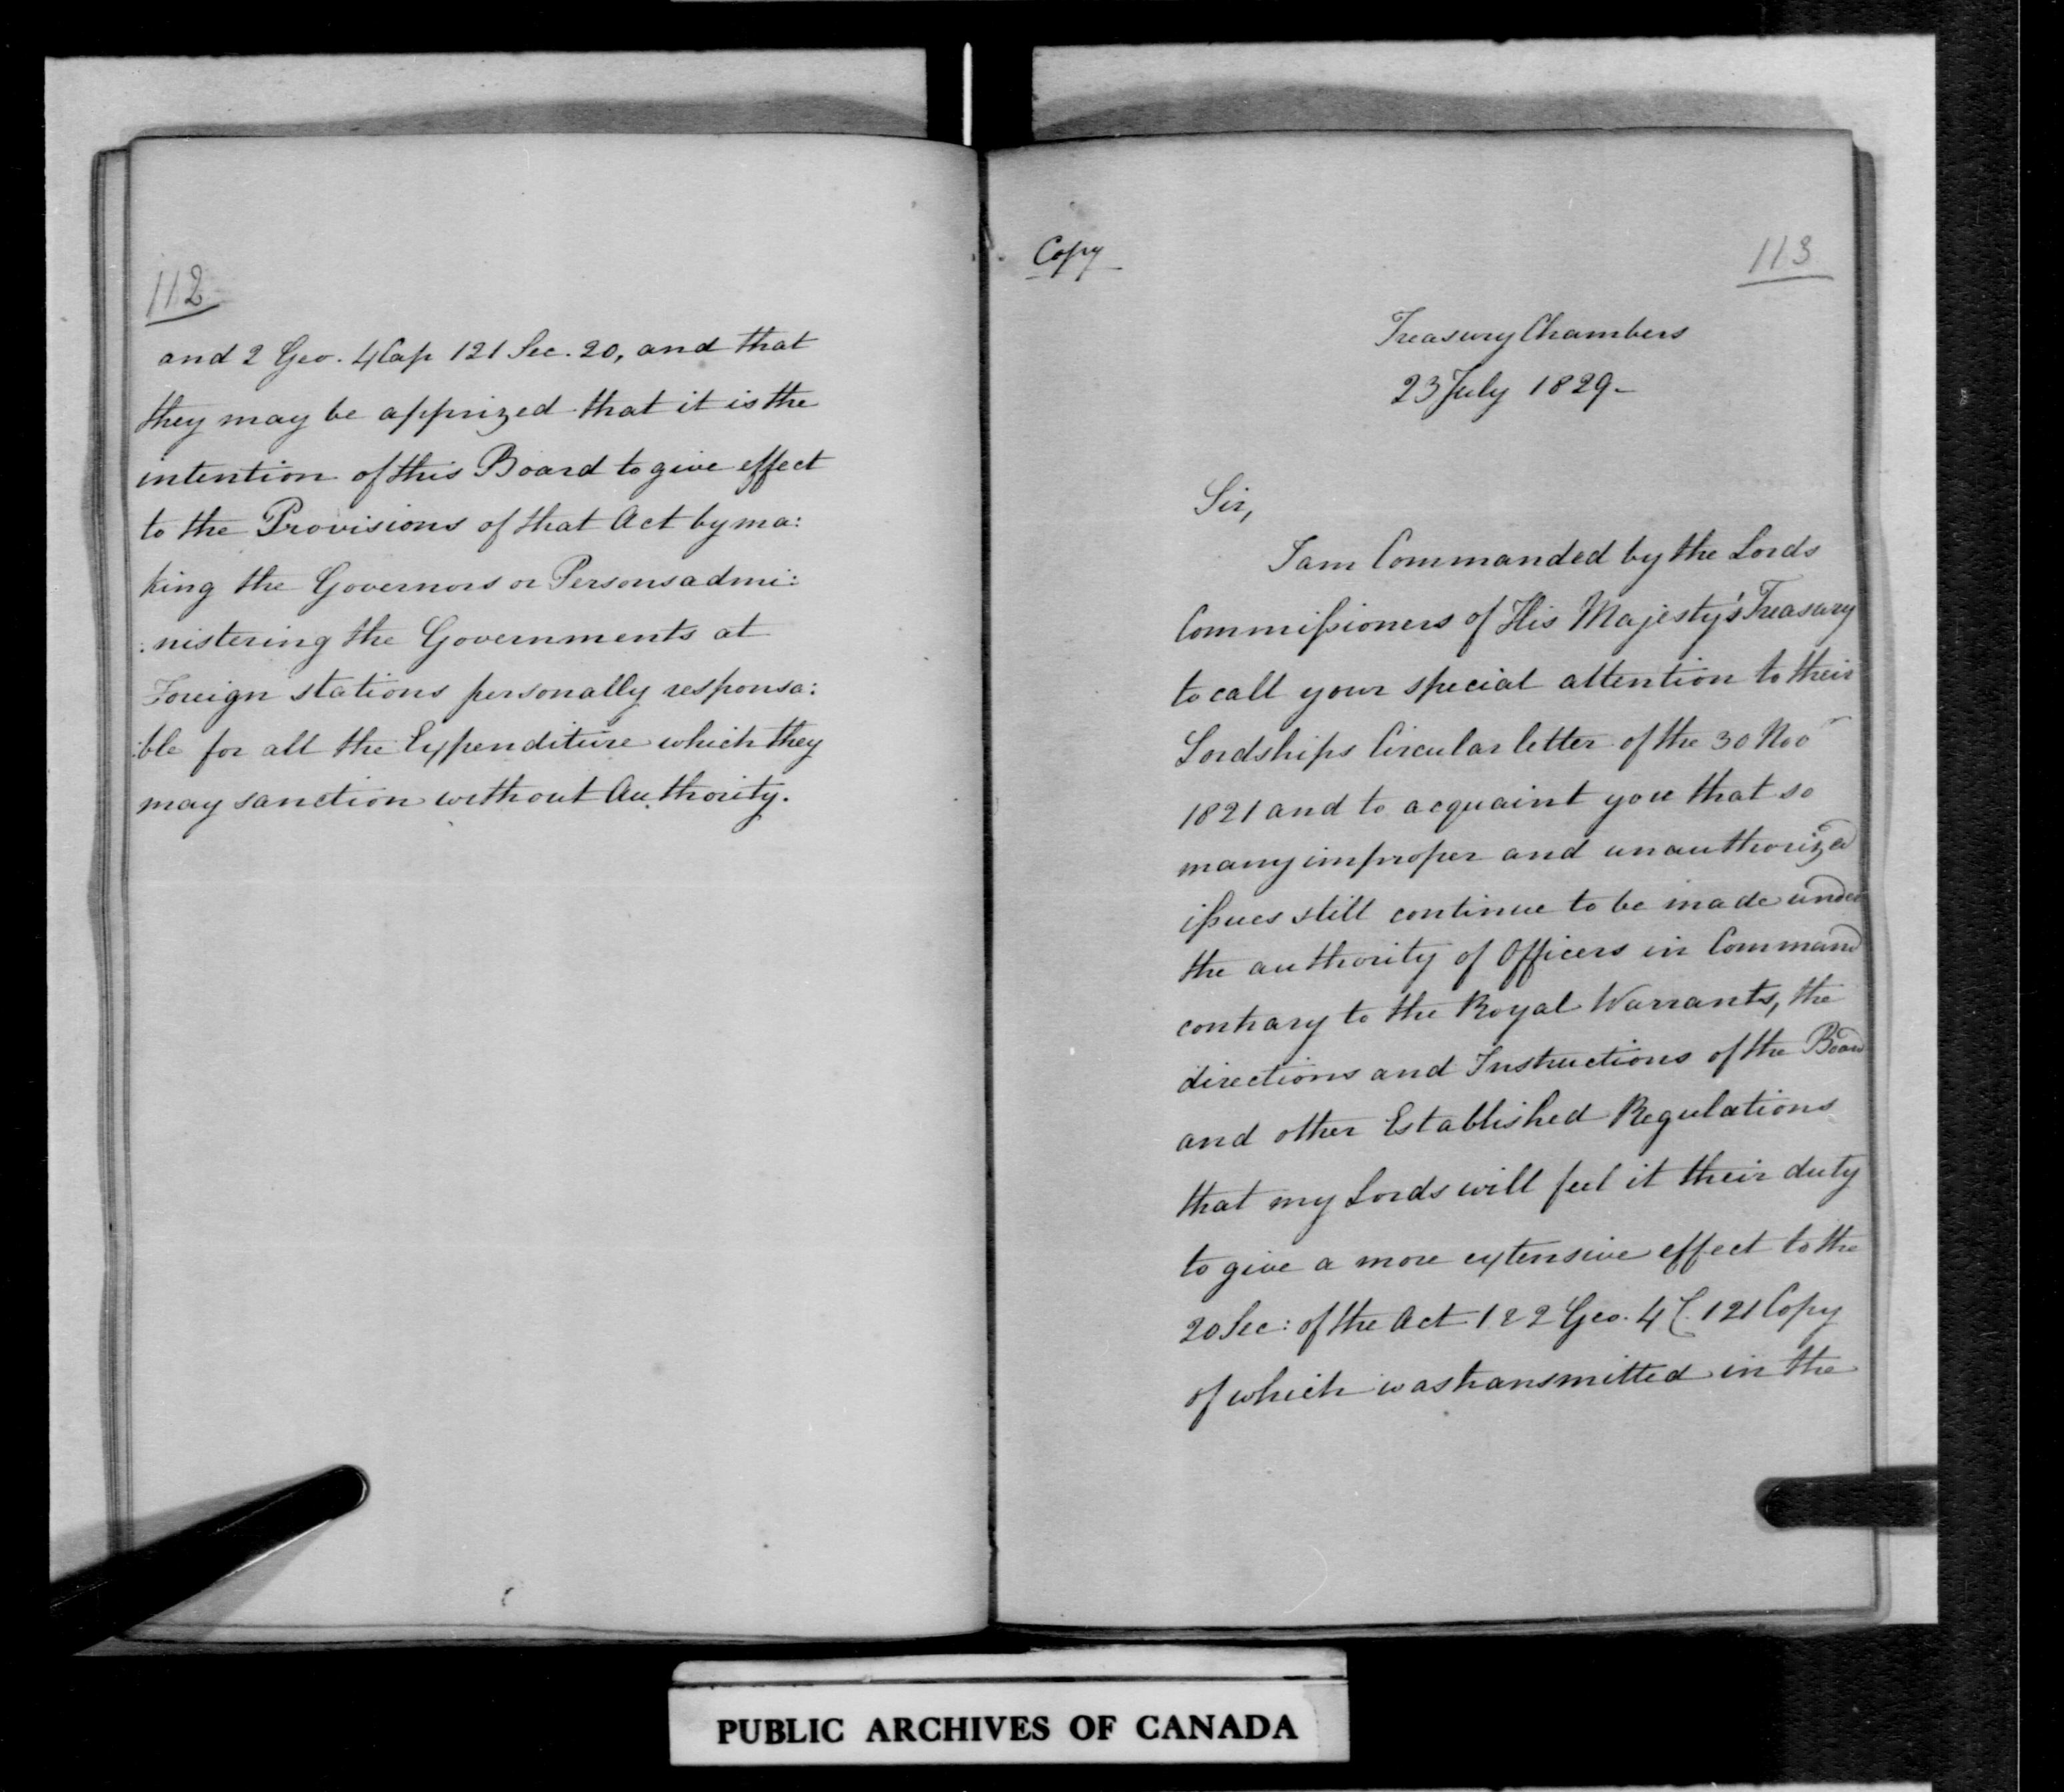 112
and 2 Geo. 4 Cap 121 Sec. 20, and that
they may be apprized that it is the
intention of this Board to give effect
to the Provisions of that Act by ma:
king the Governors or Persons admi:
:nistering the Governments at
Foreign stations personally responsa:
:ble for all the Expenditure which they
may sanction without Authority.
Copy
113
Treasury Chambers
23 July 1829–
Sir,
I am Commanded by the Lords
Commissioners of His Majesty's Treasury
to call your special attention to their
Lordships Circular letter of the 30 Nov
1821 and to acquaint you that so
many improper and unauthorized
issues still continue to be made under
the authority of Officers in Command
contrary to the Royal Warrants, the
directions and Instructions of the Board
and other Established Regulations
that my Lords will feel it their duty
to give a more extensive effect to the
20 Sec: of the Act 1 & 2 Geo. 4 C. 121 Copy
of which was transmitted in the
PUBLIC ARCHIVES OF CANADA